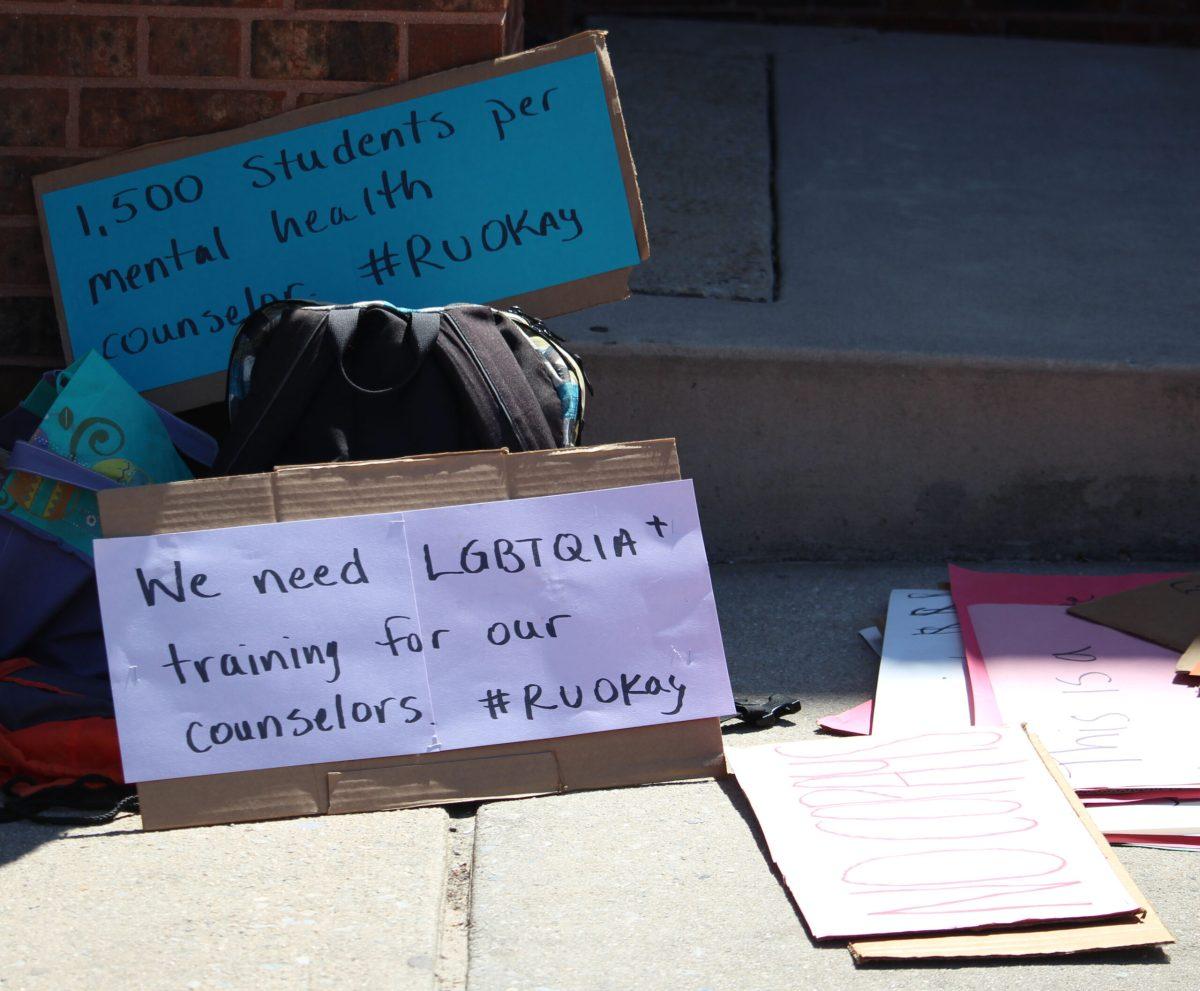 1,500 Students per
mental health
counselor. #RUOKAY
We need LGBTQIA+
training for our
counselors. #RUOKay
This is a
NO